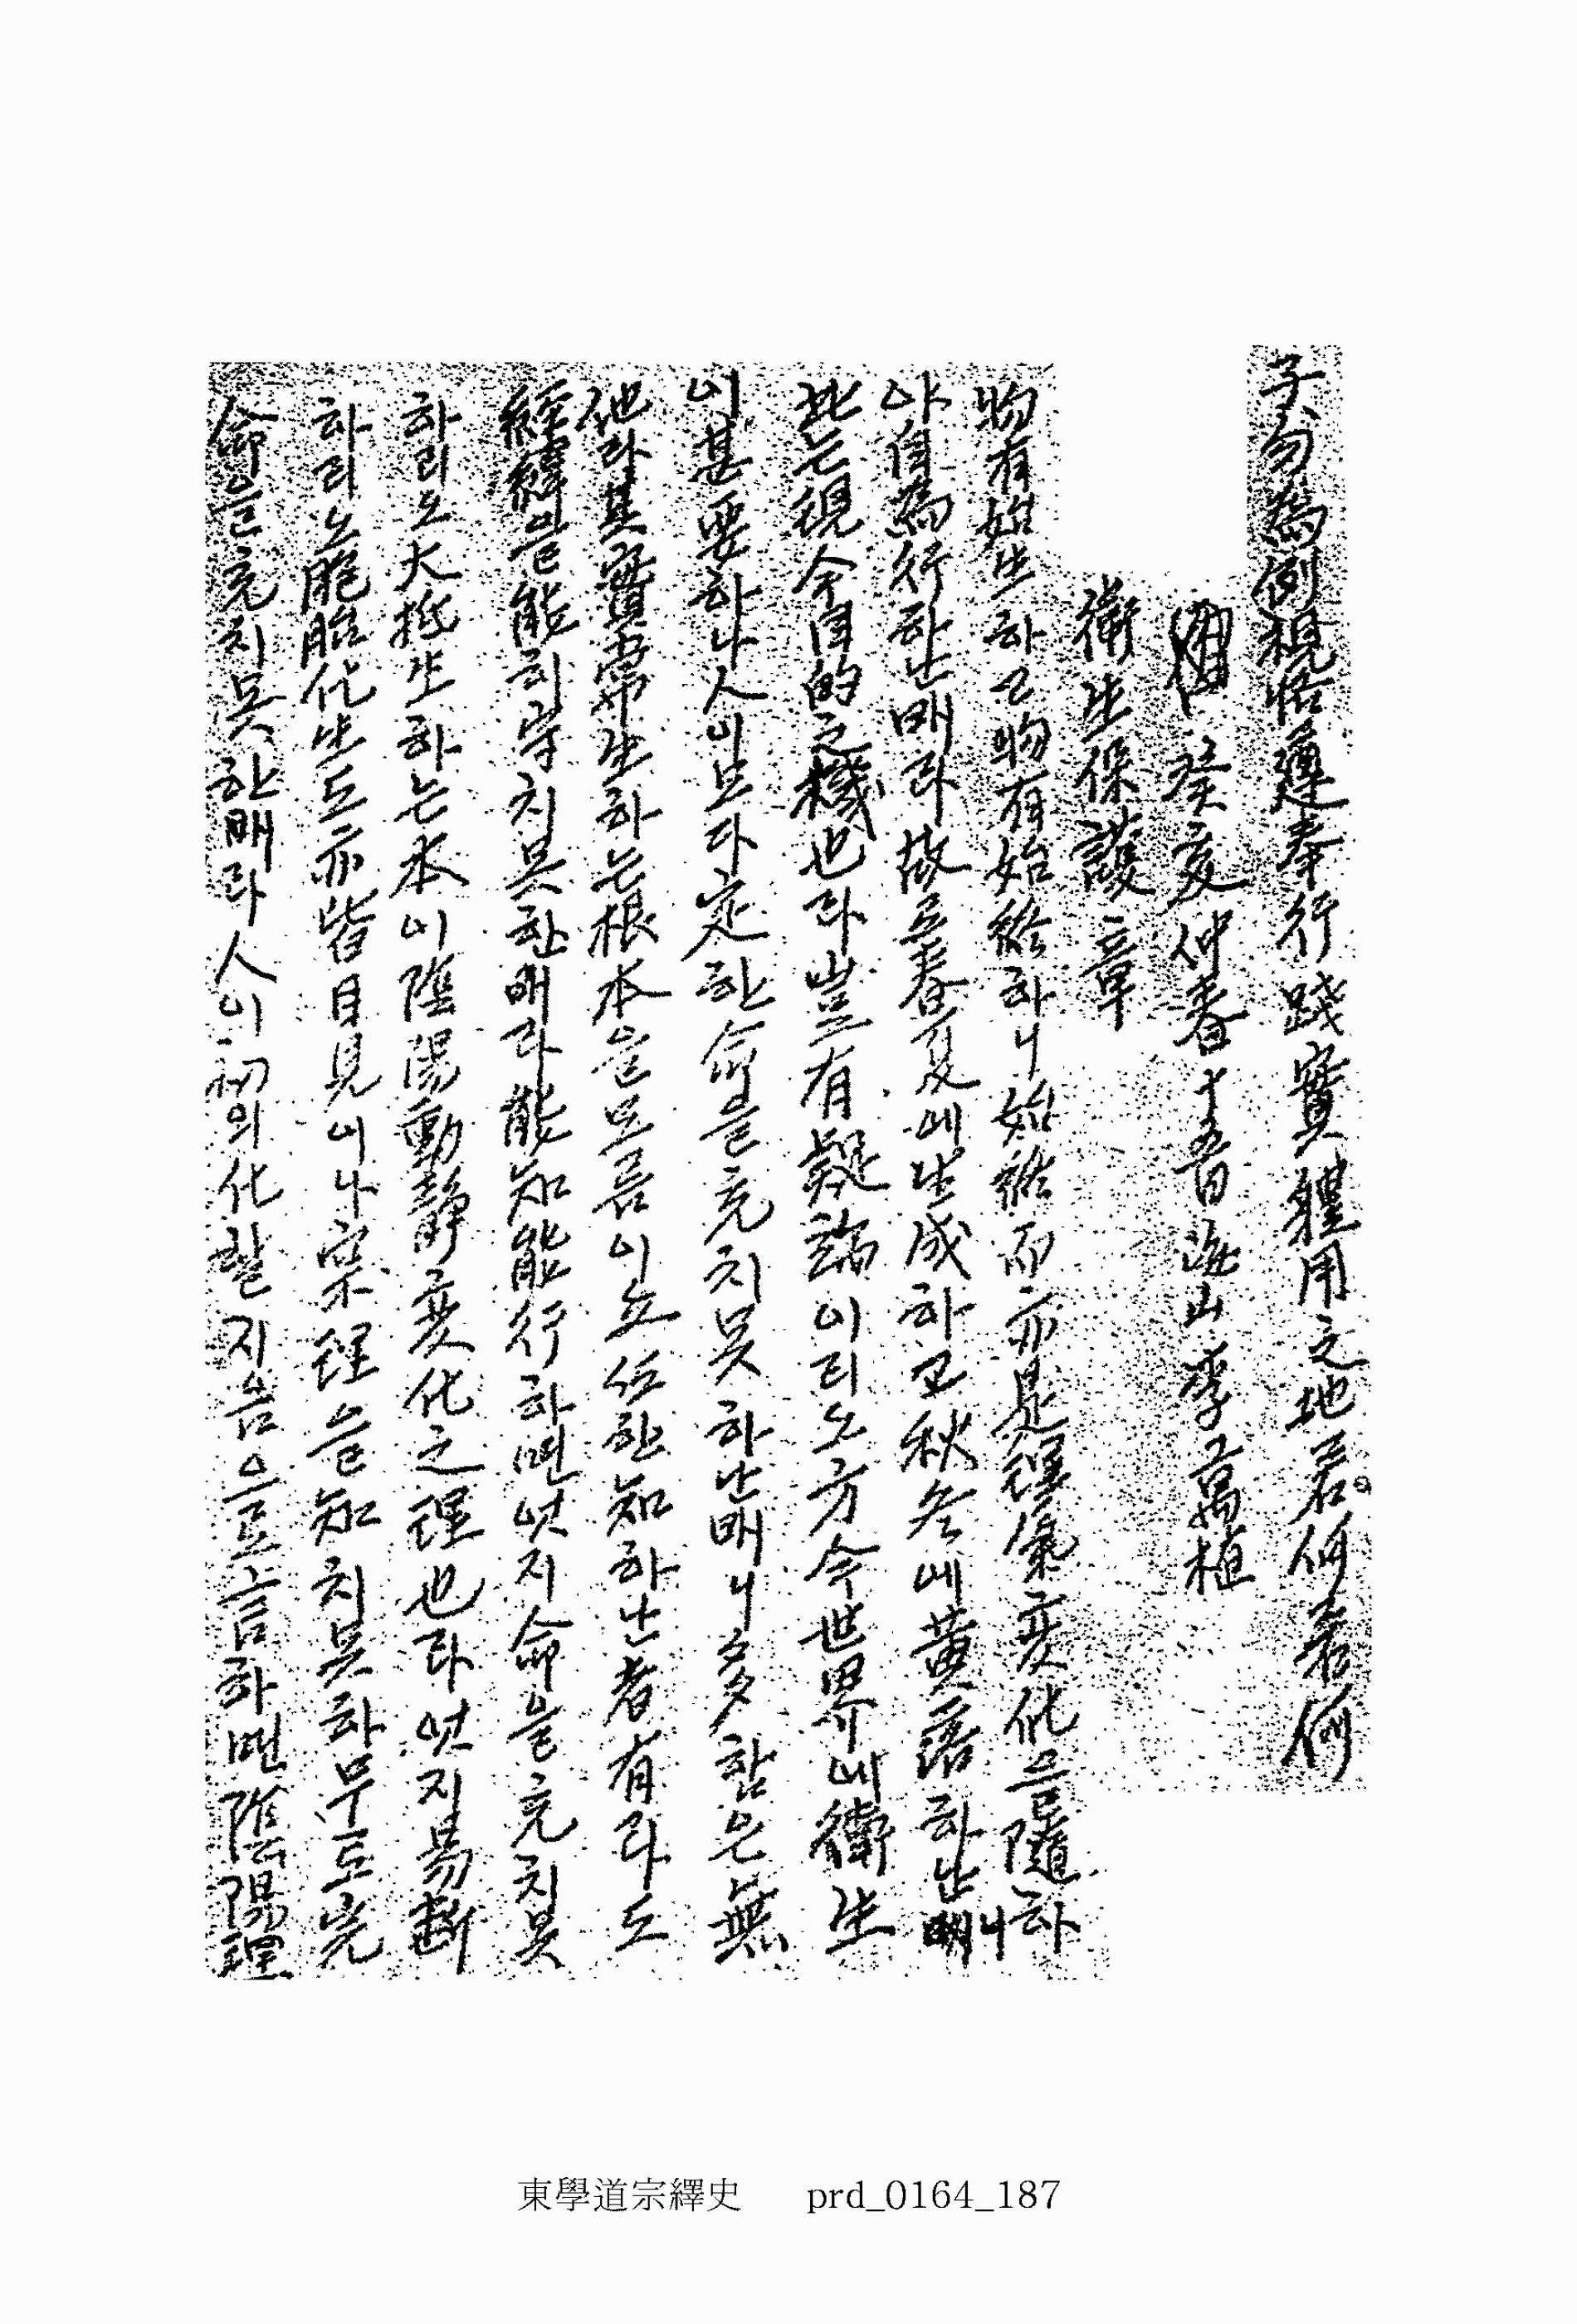 子勿爲例視恪遵奉行踐實體用之地若何若何
癸亥仲春十五日 海山 李萬植
衛生保護章
物有始生하고物有始終하니始終而亦是理氣變化을隨하
야自爲行하난매라故로春夏에生成하고秋冬에黃落하난때니
此는現今目的之機也라豈有疑端이리노方今世界에衛生
이甚要하나人이모다定한命을充치못하난매니多함은無
他라其實常生하는根本을모름이요任한知하난者有라도
經緯을能히守치못한매라能知能行하면엇지命을充치못
하리노大抵生하는本이陰陽動靜變化之理也라엇지易斷
하리노胞胎化生도亦皆目見이나窮理을知치못하무로完
命을充치못한매라人이初의化할지음으로言하면陰陽理
東學道宗繹史 prd_0164_187